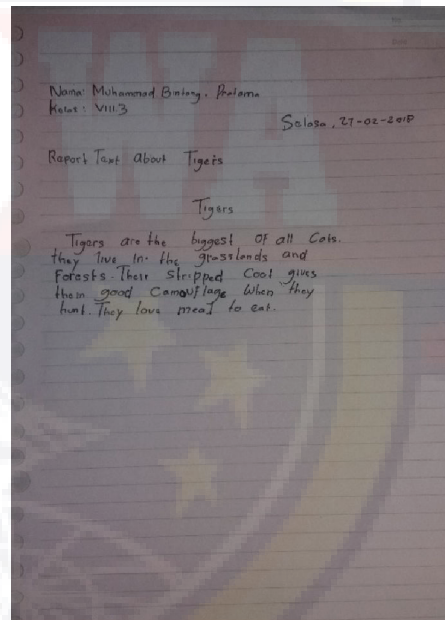 Nama: Muhammad Bintang. Pratama
Kelas: VIII.3
Selasa, 27-02-2018
Report Text about Tigers
Tigers
Tigers are the biggest of all Cats.
they live in the grasslands and
Forests. Their stripped Coat gives
them good Camouflage when they
hunt. They love meat to eat.